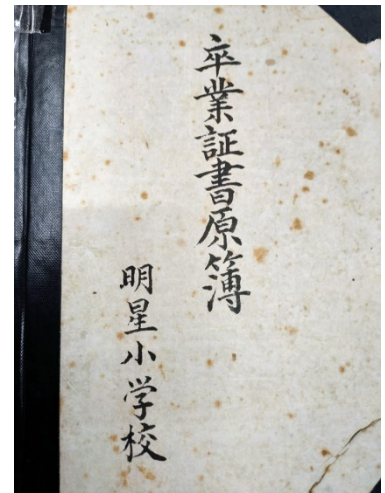 卒業証書原簿
明星小学校